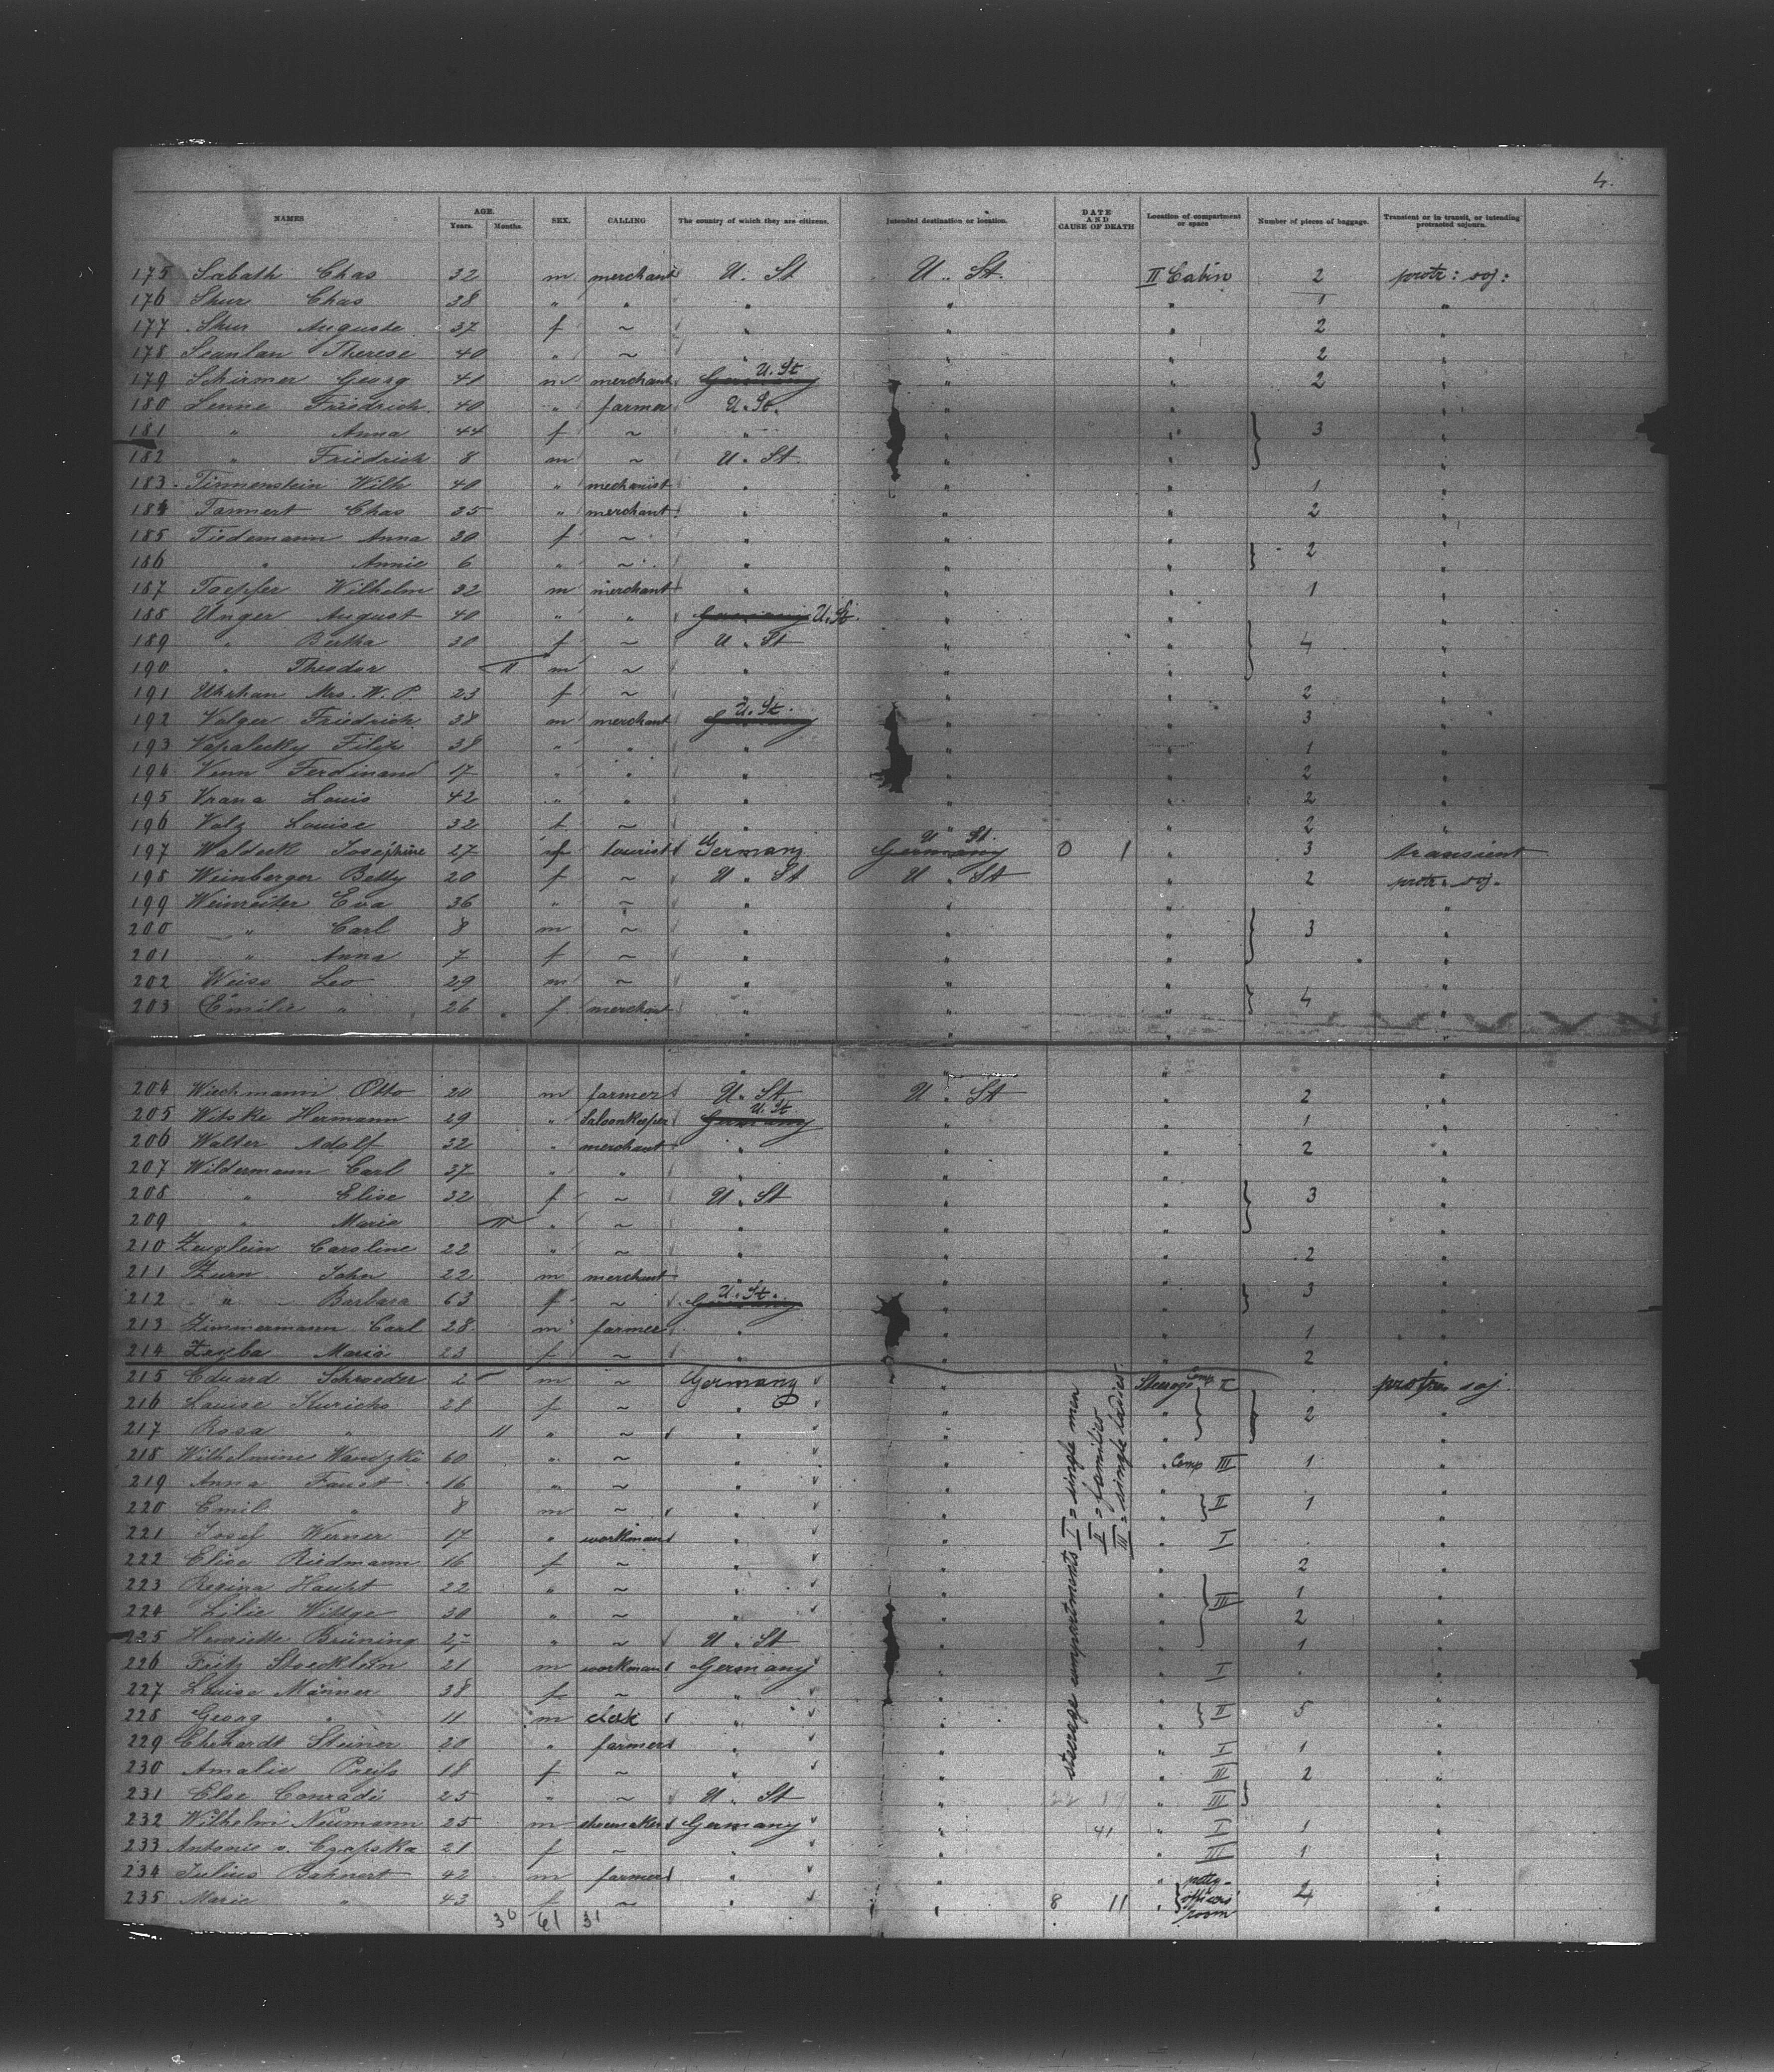 4.
NAMES AGE. Years. Months. SEX. CALLING The country of which they are citizens. Intended destination or location. DATE AND CAUSE OF DEATH Location of compartment or space Number of pieces of baggage. Transient or in transit, or intending protracted sojourn.
175 Sabath Chas 32 m merchant U. St U. St. II Cabin 2 protr: soj:
176 Shur Chas 38 " " " " " 1 "
177 Shur Auguste 37 f ~ " " " 2 "
178 Scanlan Therese 40 " ~ " " " 2 "
179 Schirmer Georg 41 m merchant Germany U. St " " 2 "
180 Senne Friedrich 40 " farmer U. St. " " "
181 " Anna 44 f ~ " " " 3 "
182 " Friedrich 8 m ~ U. St. " " "
183 Tinnenstein Wilh 40 " mechanist " " " 1 "
184 Tannert Chas 35 " merchant " " " 2 "
185 Tiedemann Anna 30 f ~ " " " "
186 " Annie 6 " ~ " " " 2 "
187 Toepfer Wilhelm 32 m merchant " " " 1 "
188 Unger August 40 " " Germany U. St. " " "
189 " Bertha 30 f ~ U. St " " 4 "
190 " Theodor 11 m ~ " " " "
191 Uhrhan Mrs. W. P. 23 f ~ " " " 2 "
192 Volger Friedrich 38 m merchant Germany U. St. " " 3 "
193 Vapalecky Filip 38 " " " " " 1 "
194 Venn Ferdinand 17 " " " " " 2 "
195 Vrana Louis 42 " " " " " 2 "
196 Volz Louise 32 f ~ " " " 2 "
197 Waldeck Josephine 27 f tourist Germany Germany U. St. 0 1 " 3 transient
198 Weinberger Betty 20 f ~ U. St U. St " 2 protr. soj.
199 Weinreiter Eva 36 " ~ " " " "
200 " Carl 8 m ~ " " " 3 "
201 " Anna 7 f ~ " " " "
202 Weiss Leo 29 m ~ " " " "
203 Emilie " 26 f merchant " " " 4 "
204 Wiechmann Otto 20 m farmer U. St U. St " 2 "
205 Witske Hermann 29 " Saloonkeeper Germany U. St " " 1 "
206 Walter Adolf 32 " merchant " " " 2 "
207 Wildermann Carl 37 " " " " " "
208 " Elise 32 f ~ U. St " " 3 "
209 " Marie 11 " ~ " " " "
210 Zeuglein Caroline 22 " ~ " " " 2 "
211 Zurn John 22 m merchant " " " "
212 " Barbara 63 f ~ Germany U. St. " " 3 "
213 Zimmermann Carl 28 m farmer " " " 1 "
214 Maria 23 f ~ " " " 2 "
215 Eduard Schroeder 2 m ~ Germany " Steerage Comp II protr. soj.
216 Louise Kurichs 28 f ~ " " " 2 "
217 Rosa " 11 " ~ " " " "
218 Wilhelmine Wandzki 60 " ~ " " " Comp III 1 "
219 Anna Faust 16 " ~ " " " "
220 Emil " 8 m ~ " " " II 1 "
221 Josef Werner 17 " workman " " " I "
222 Elise Riedmann 16 f ~ " " " 2 "
223 Regina Haupt 22 " ~ " " " III 1 "
224 Lilie Wittge 30 " ~ " " " 2 "
225 Henriette Brüning " ~ U. St " " 1 "
226 Fritz Stoecklein 21 m workman Germany " " I "
227 Louise Männer 38 f ~ " " " "
228 Georg " 11 m clerk " " " II 5 "
229 Ehrhardt Steiner 20 " farmer " " " I 1 "
230 Amalie Preiss 18 f ~ " " " III 2 "
231 Else Conradi 25 " ~ U. St " 22 19 " III "
232 Wilhelm Neumann 25 m shoemaker Germany " 41 " I 1 "
233 Antonie v. Czapska 21 f ~ " " " III 1 "
234 Julius Bahnert 42 m farmer " " " petty- "
235 Marie " 43 f ~ " " 8 11 " officers' room 4 "
30 61 31
steerage compartments I = single men
II = families
III = single ladies.